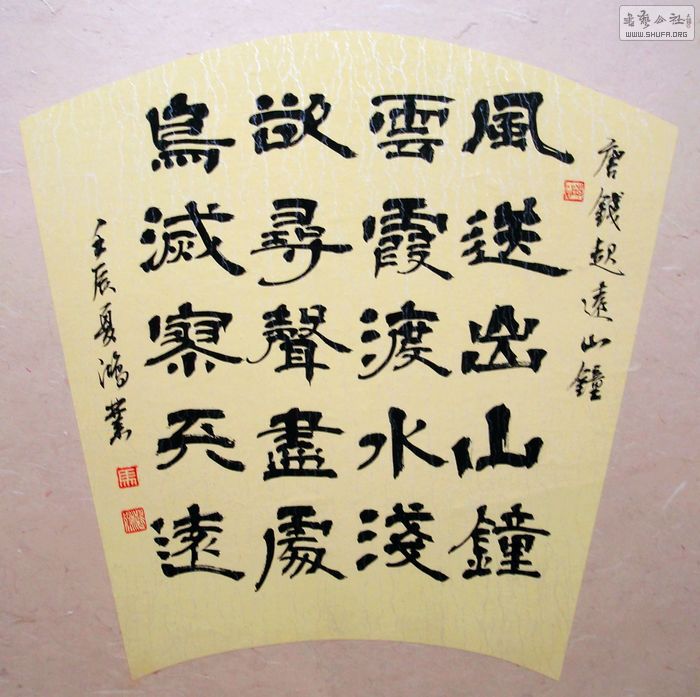 唐錢起遠山鐘
風送出山鐘
雲霞渡水淺
欲尋聲盡處
鳥滅寥天遠
壬辰夏鴻業
書藝公社
WWW.SHUFA.ORG